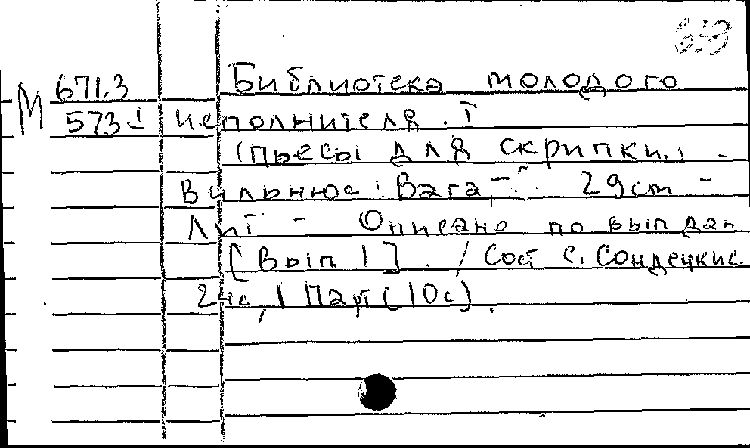 М 671.3 Библиотека молодого
573 исполнителя. I
(пьесы для скрипки.
Вильнюс: Вага - 29 cm -
Лит - Описано по вып дан
[Вып 1]. / Сост С. Сондецкис
24с, 1 Парт (10с).